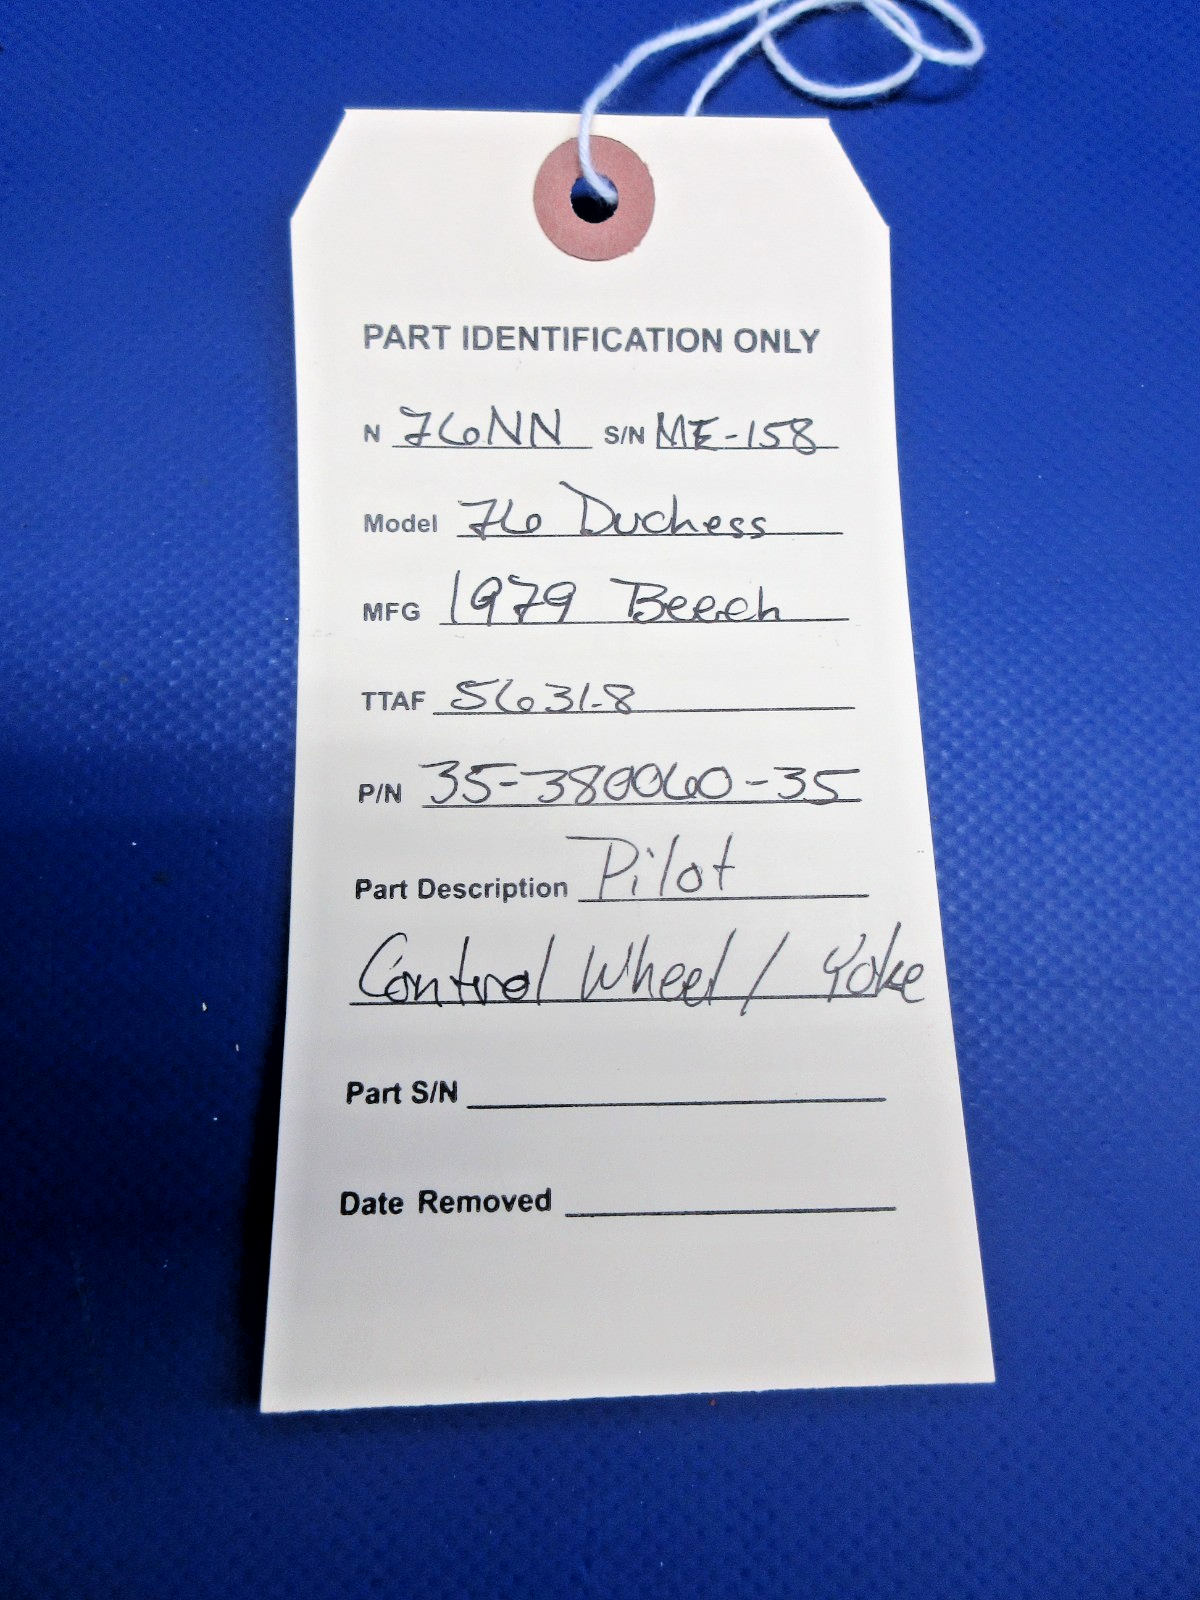 PART IDENTIFICATION ONLY
N 76NN S/N ME-158
Model 76 Duchess
MFG 1979 Beech
TTAF 5631.8
P/N 35-380060-35
Part Description Pilot
Control Wheel / Yoke
Part S/N
Date Removed